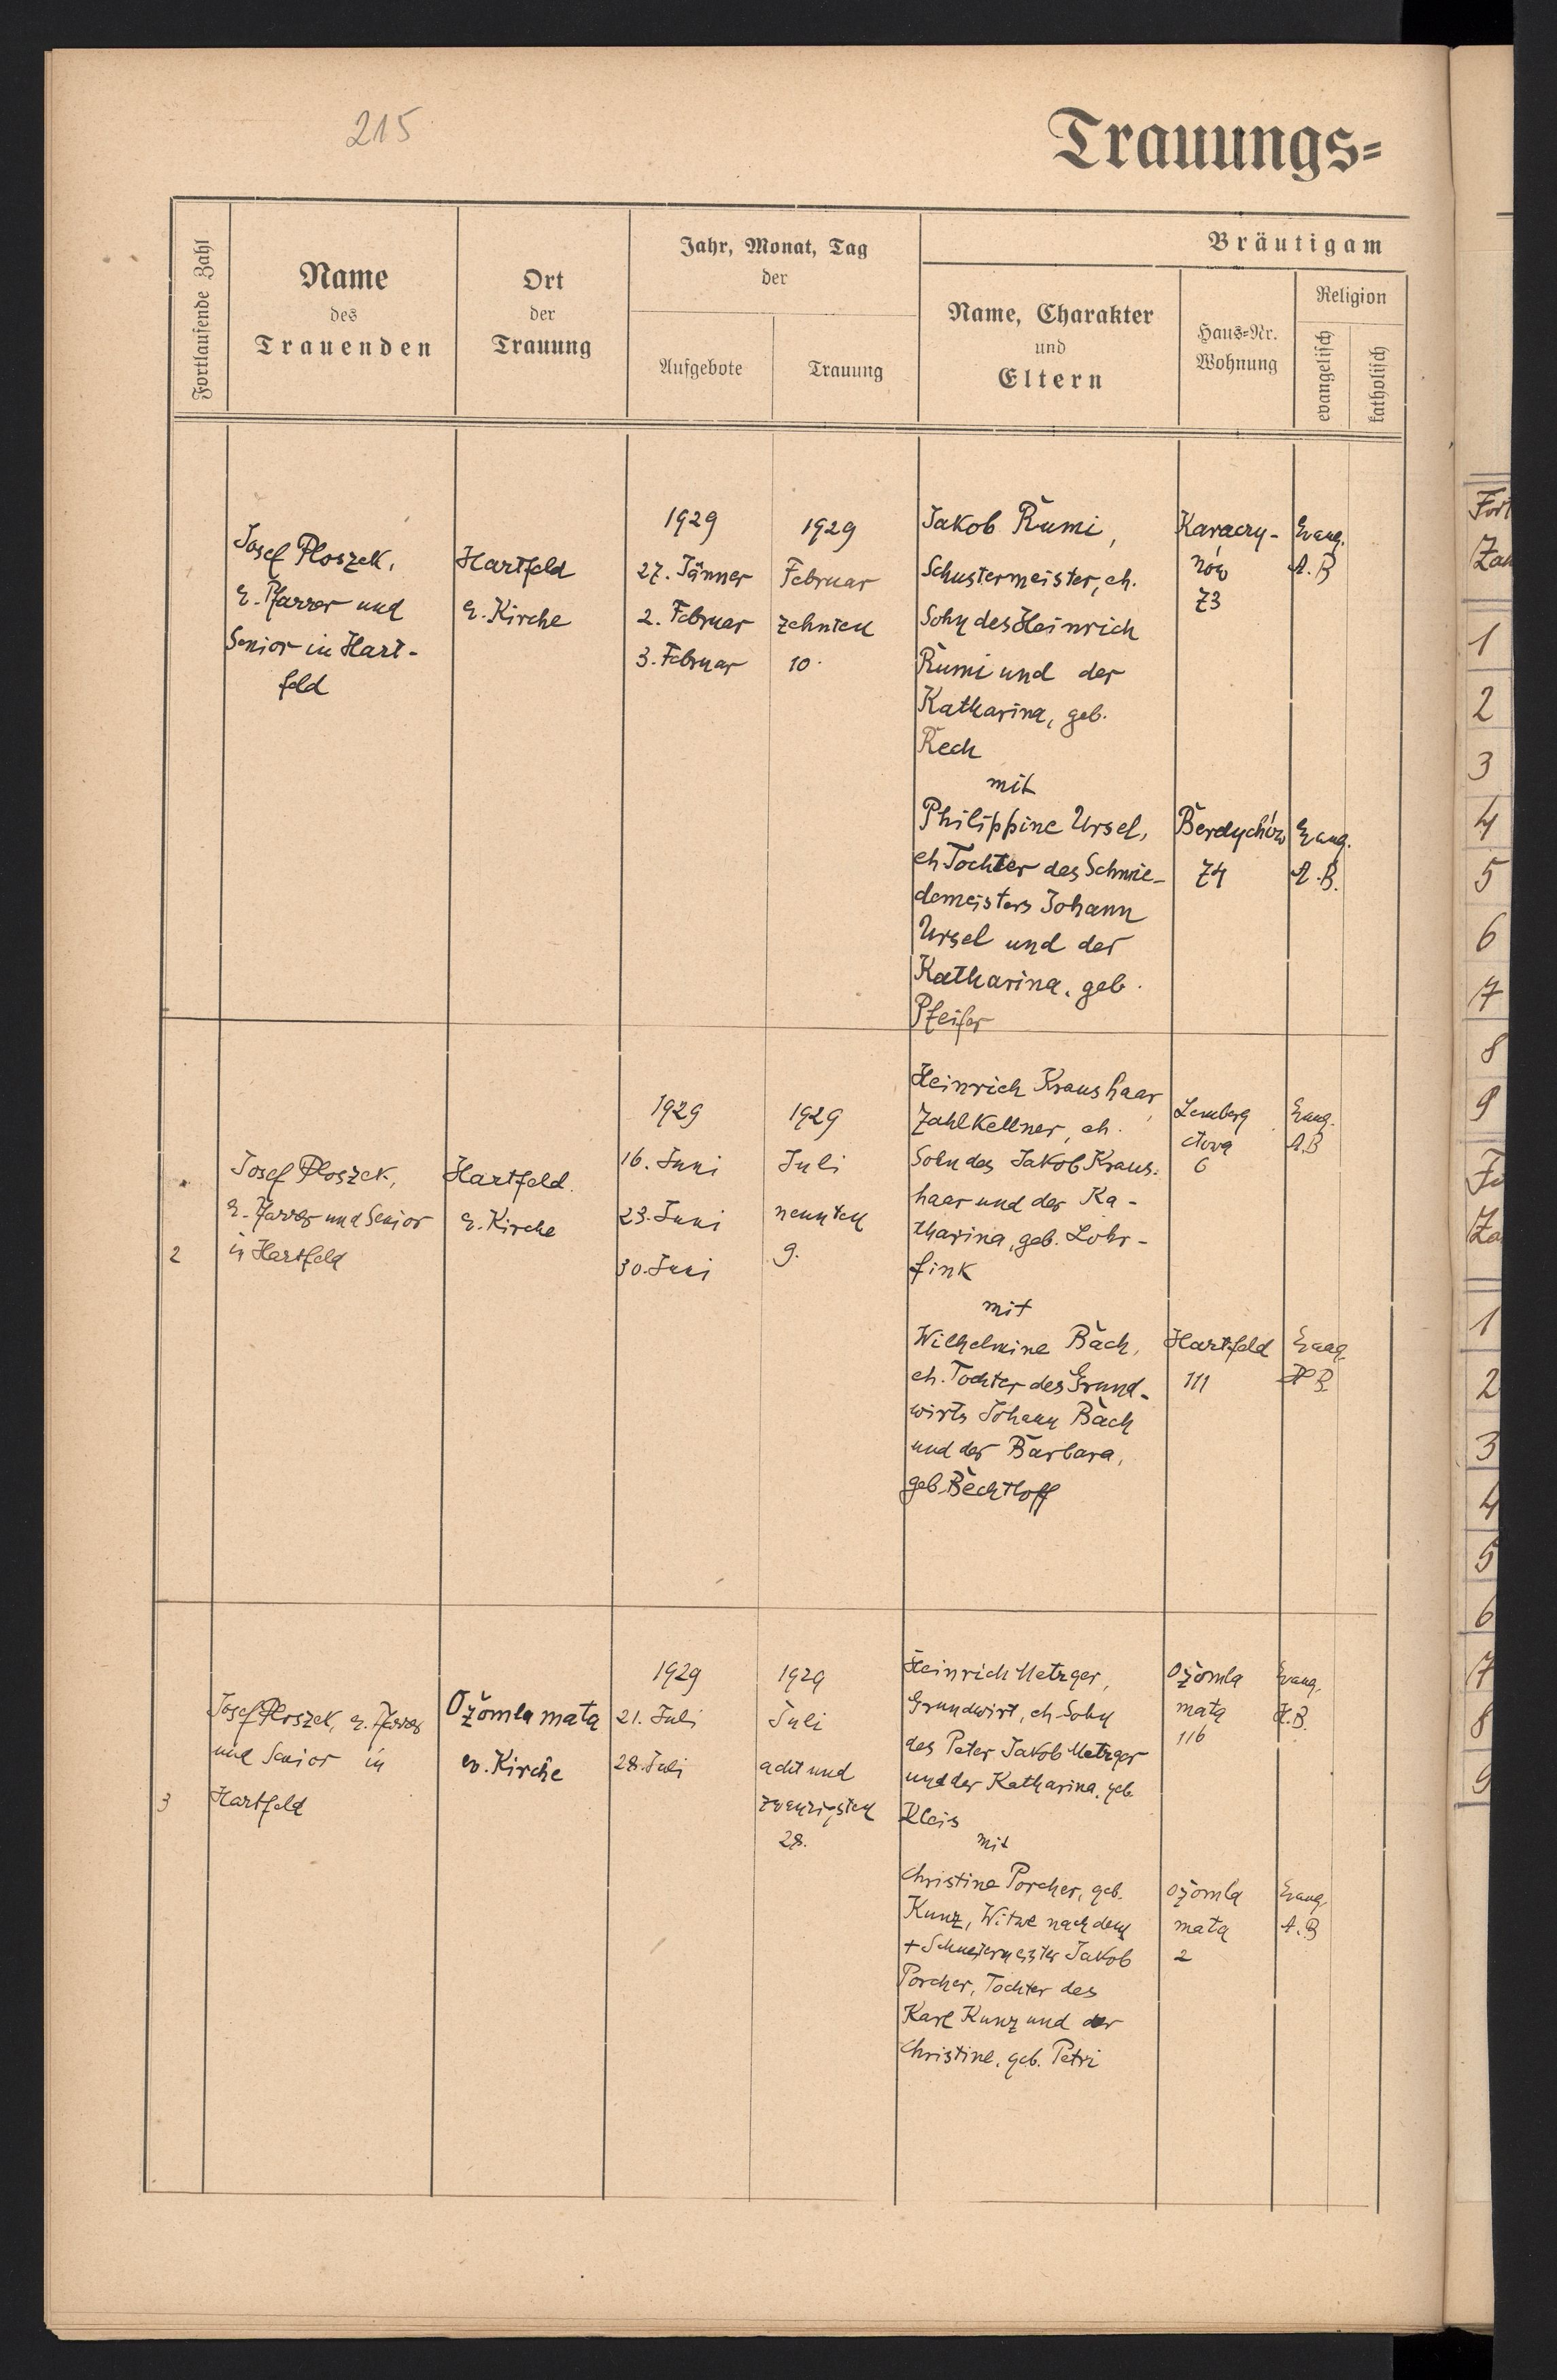 215
Trauungs=
Fortlaufende Zahl
Name
des
Trauenden
Ort
der
Trauung
Jahr, Monat, Tag
der
Aufgebote
Trauung
Bräutigam
Name, Charakter
und
Eltern
Haus=Nr.
Wohnung
Religion
evangelisch
katholisch
Josef Ploszek,
E. Pfarrer und
Senior in Hart-
feld
Hartfeld
E. Kirche
1929
27. Jänner
2. Februar
3. Februar
1929
Februar
zehnten
10.
Jakob Rumi,
Schustermeister, eh.
Sohn des Heinrich
Rumi und der
Katharina, geb.
Rech
mit
Philippine Ursel,
eh Tochter des Schmie-
demeisters Johann
Ursel und der
Katharina, geb.
Pfeifer
Karaczy-
nów
73
Berdychów
74
Evang.
A. B
Evang.
A. B.
2
Josef Ploszek,
E. Pfarrer und Senior
in Hartfeld
Hartfeld.
E. Kirche
1929
16. Juni
23. Juni
30. Juni
1929
Juli
neunten
9.
Heinrich Kraushaar,
Zahlkellner, eh.
Sohn des Jakob Kraus-
haar und der Ka-
tharina, geb. Lohr-
fink
mit
Wilhelmine Bach,
eh. Tochter des Grund-
wirts Johann Bach
und der Barbara,
geb. Bechtloff
Lemberg
6
Hartfeld
111
Evang.
A. B
Evang.
B.
3
Josef Ploszek, E. Pfarrer
und Senior in
Hartfeld
Ożomla mała
ev. Kirche
1929
21. Juli
28. Juli
1929
Juli
acht und
zwanzigsten
28.
Heinrich Metzger,
Grundwirt, eh Sohn
des Peter Jakob Metzger
und der Katharina, geb.
Kleis
mit
Christine Porcher, geb.
Kunz, Witwe nach dem
+ Jakob
Porcher, Tochter des
Karl Kunz und der
Christine, geb. Petri
Ożomla
mała
116
Ożomla
mała
2
Evang.
A. B.
Evang.
A. B
1
2
3
4
5
6
7
8
9
1
2
3
4
5
6
7
8
9